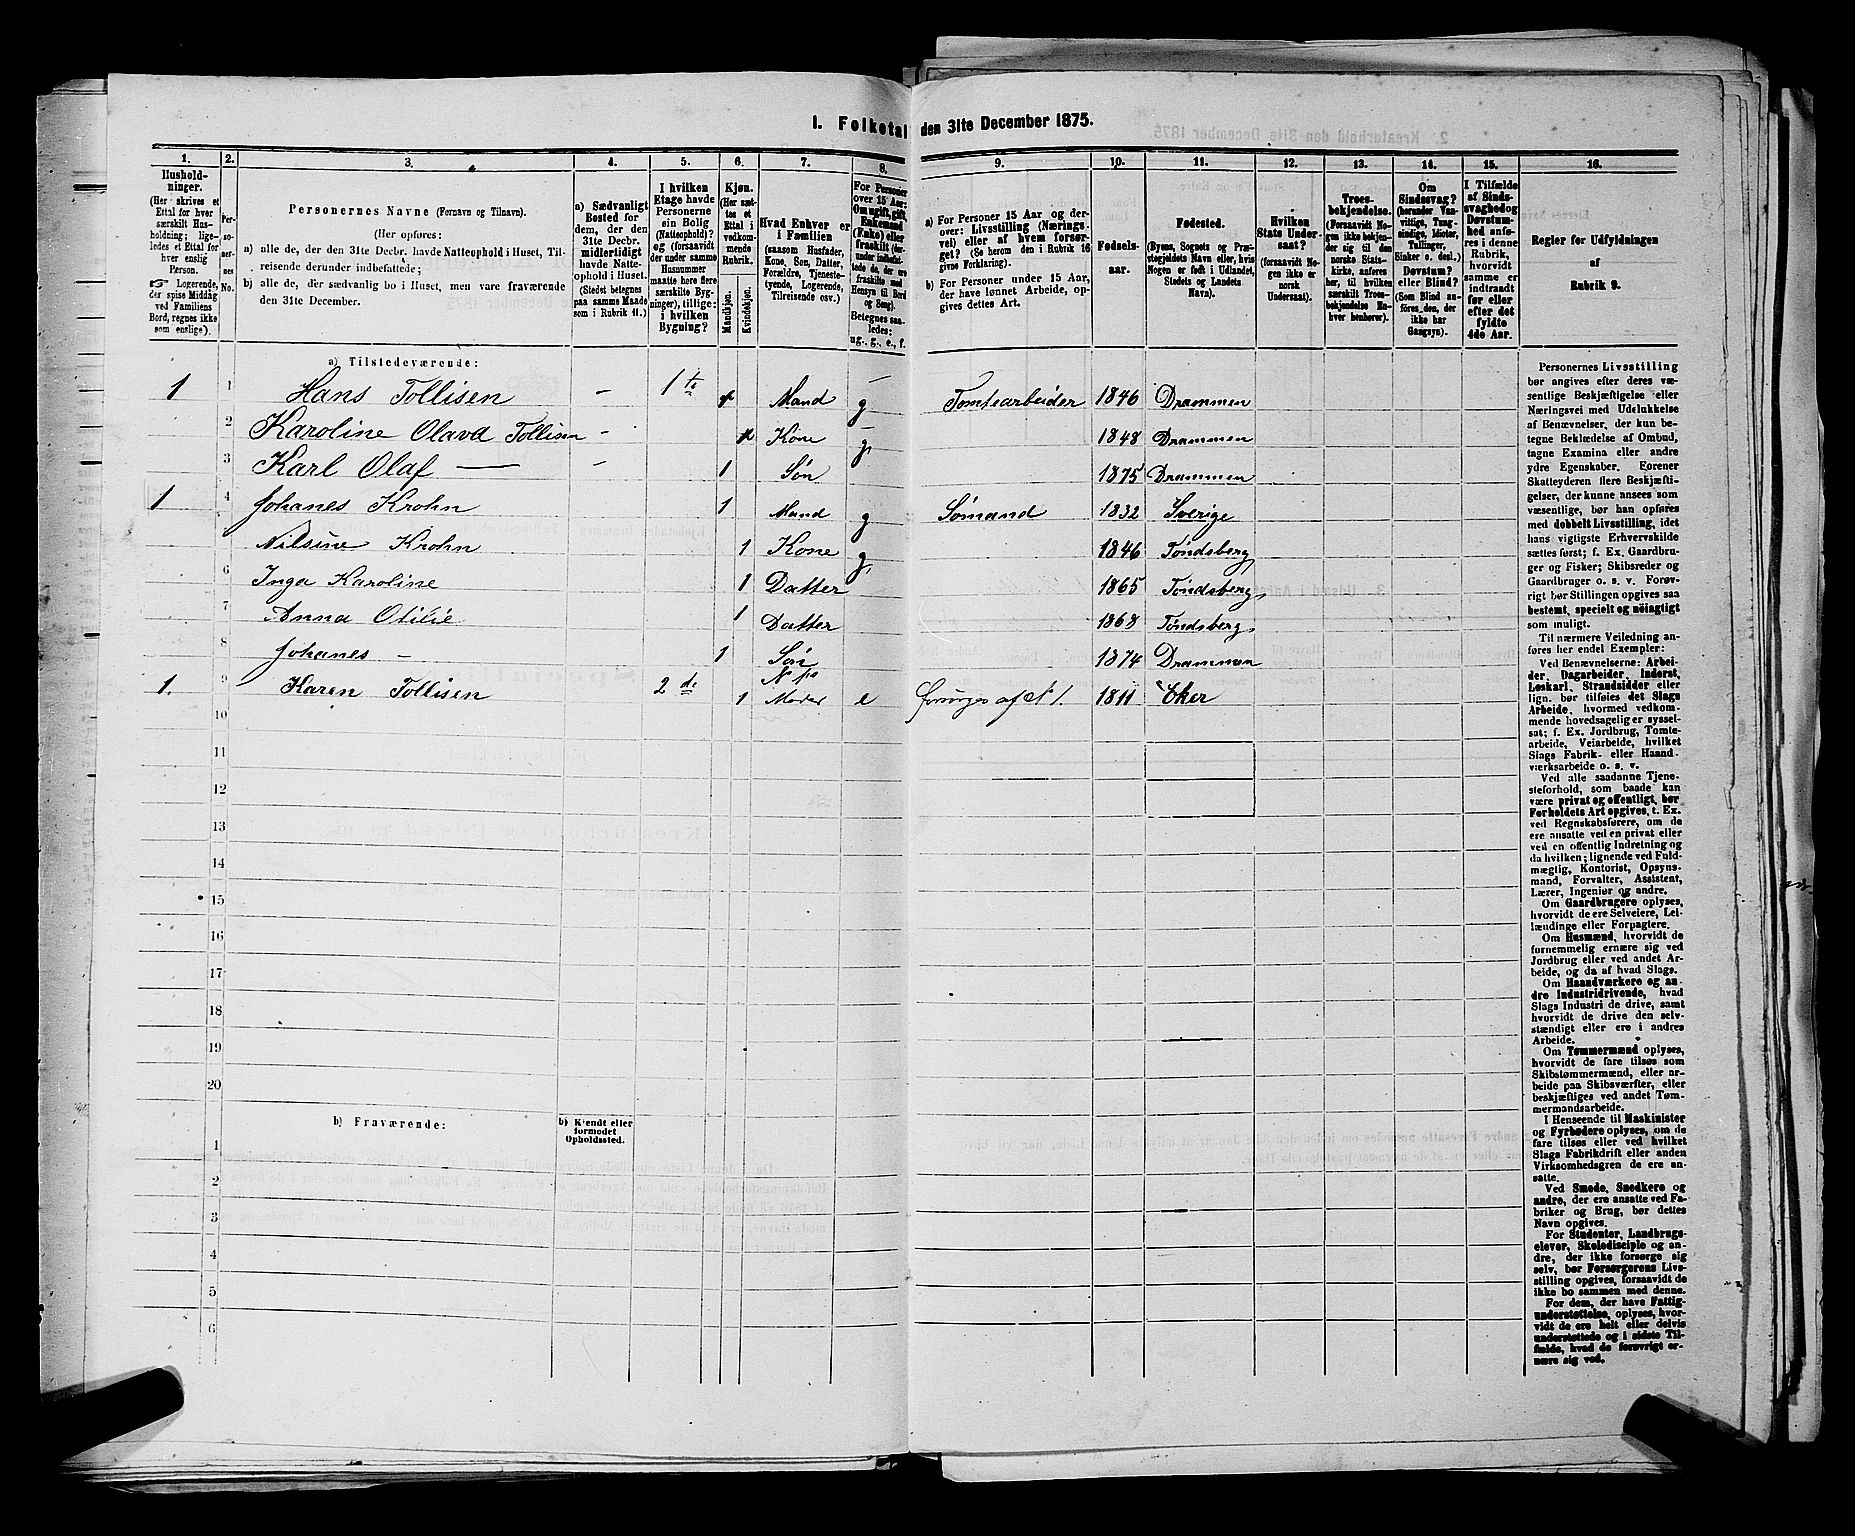 I. Folketal den 31te December 1875.
1. 2. 3. 4. 5. 6. 7. 8. 9. 10. 11. 12. 13. 14. 15. 16.
Husholdninger.
(Her skrives et
Ettal for hver
særskilt Husholdning;
ligeledes et Ettal for
hver enslig
Person.
☞ Logerende,
der spise Middag
ved Familiens
Bord, regnes ikke
som enslige).
Personernes No.
Personernes Navne (Fornavn og Tilnavn).
(Her opføres:
a) alle de, der den 31te Decbr. havde Natteophold i Huset, Tilreisende
derunder indbefattede;
b) alle de, der sædvanlig bo i Huset, men vare fraværende
den 31te December.
a) Sædvanligt
Bosted for
dem, der den
31te Decbr.
midlertidigt
havde Natteophold
i Huset.
(Stedet betegnes
paa samme Maade
som i Rubrik 11.)
I hvilken
Etage havde
Personerne
sin Bolig
(Natteophold)?
og (forsaavidt
der under samme
Husnummer
maatte høre flere
særskilte Bygninger),
tillige:
i hvilken
Bygning?
Kjøn.
(Her sættes
et
Ettal i
vedkommende
Rubrik.
Mandkjøn.
Kvindekjøn.
Hvad Enhver er
i Familien
(saasom Husfader,
Kone, Søn, Datter,
Forældre, Tjenestetyende,
Logerende,
Tilreisende osv.)
For Personer
over 15 Aar:
Om ugift, gift,
Enkemand
(Enke) eller
fraskilt (derunder
indbefattede
de, der ere
fraskilte med
Hensyn til Bord
og Seng).
Betegnes saaledes:
ug., g., e., f.
a) For Personer 15 Aar og derover:
Livsstilling (Næringsvei)
eller af hvem forsørget?
(Se herom den i Rubrik 16
givne Forklaring).
b) For Personer under 15 Aar,
der have lønnet Arbeide, opgives
dettes Art.
Fødselsaar.
Fødested.
(Byens, Sognets og Præstegjeldets
Navn eller, hvis
Nogen er født i Udlandet,
Stedets og Landets
Navn).
Hvilken
Stats Undersaat?
(forsaavidt Nogen
ikke er
norsk
Undersaat).
Troesbekjendelse.
(Forsaavidt Nogen
ikke bekjender
sig til den
norske Statskirke,
anføres
her, til hvilken
særskilt Troesbekjendelse
Enhver
henhører).
Om
Sindssvag?
(herunder Vanvittige,
Tungsindige,
Idioter,
Tullinger,
Sinker o. desl.).
Døvstum?
eller Blind?
(Som Blind anføres
den, der
ikke har
Gangsyn).
I Tilfælde
af Sindssvaghed
og
Døvstumhed
anføres
i denne
Rubrik,
hvorvidt
samme er
indtraadt
før eller
efter det
fyldte
4de Aar.
Regler for Udfyldningen
af
Rubrik 9.
a) Tilstedeværende:
1 1 Hans Tollisen – 1te Mand g Tomtearbeider 1846 Drammen
2 Karoline Olava Tollisen – Kone g 1848 Drammen
3 Karl Olaf — – 1 Søn 1875 Drammen
1 4 Johanes Krohn 1 Mand g Sømand 1832 Sverige
Nilsine Krohn 1 Kone g 1846 Tøndsberg
6 Inga Karoline 1 Datter 1865 Tøndsberg
7 Anna Otilie 1 Datter 1868 Tøndsberg
8 Johanes – 1 Søn 1874 Drammen
1. 9 Karen Tollisen 2de 1 Moder e forsørges af No 1. 1811 Eker
10
11
12
13
14
15
16
17
18
19
20
b) Fraværende:
b) Kjendt eller
formodet
Opholdssted.
1
2
3
4
5
6
Personernes Livsstilling
bør angives efter deres væsentlige
Beskjæftigelse eller
Næringsvei med Udelukkelse
af Benævnelser, der kun betegne
Beklædelse af Ombud,
tagne Examina eller andre
ydre Egenskaber. Forener
Skatteyderen flere Beskjæftigelser,
der kunne ansees som
væsentlige, bør han opføres
med dobbelt Livsstilling, idet
hans vigtigste Erhvervskilde
sættes først; f. Ex. Gaardbruger
og Fisker; Skibsreder og
Gaardbruger o. s. v. Forøvrigt
bør Stillingen opgives saa
bestemt, specielt og nøiagtigt
som muligt.
Til nærmere Veiledning anføres
her endel Exempler:
Ved Benævnelserne: Arbeider,
Dagarbeider, Inderst,
Løskarl, Strandsidder eller
lign. bør tilføies det Slags
Arbeide, hvormed vedkommende
hovedsagelig er sysselsat;
f. Ex. Jordbrug, Tomtearbeide,
Veiarbeide, hvilket
Slags Fabrik- eller Haandværksarbeide
o. s. v.
Ved alle saadanne Tjenesteforhold,
som baade kan
være privat og offentligt, bør
Forholdets Art opgives, t. Ex.
ved Regnskabsførere, om de
ere ansatte ved en privat eller
ved en offentlig Indretning og
da hvilken; lignende ved Fuldmægtig,
Kontorist, Opsynsmand,
Forvalter, Assistent,
Lærer, Ingeniør og andre.
Om Gaardbrugere oplyses,
hvorvidt de ere Selveiere, Leilændinge
eller Forpagtere.
Om Husmænd, hvorvidt de
fornemmelig ernære sig ved
Jordbrug eller ved andet Arbeide,
og da af hvad Slags.
Om Haandværkere og andre
Industridrivende, hvad
Slags Industri de drive, samt
hvorvidt de drive den selvstændigt
eller ere i andres
Arbeide.
Om Tømmermænd oplyses,
hvorvidt de fare tilsøs som
Skibstømmermænd, eller arbeide
paa Skibsværfter, eller
beskjæftiges ved andet Tømmermandsarbeide.
I Henseende til Maskinister
og Fyrbødere oplyses, om de
fare tilsøs eller ved hvilket
Slags Fabrikdrift eller anden
Virksomhedsgren de ere ansatte.
Ved Smede, Snedkere og
andre, der ere ansatte ved Fabriker
og Brug, bør dettes
Navn opgives.
For Studenter, Landbrugselever,
Skoledisciple og andre,
der ikke forsørge sig
selv, bør Forsørgerens Livsstilling
opgives, forsaavidt de
ikke bo sammen med denne.
For dem, der have Fattigunderstøttelse,
oplyses, hvorvidt
de ere helt eller delvis
understøttede og i sidste Tilfælde,
hvad de forøvrigt ernære
sig ved.